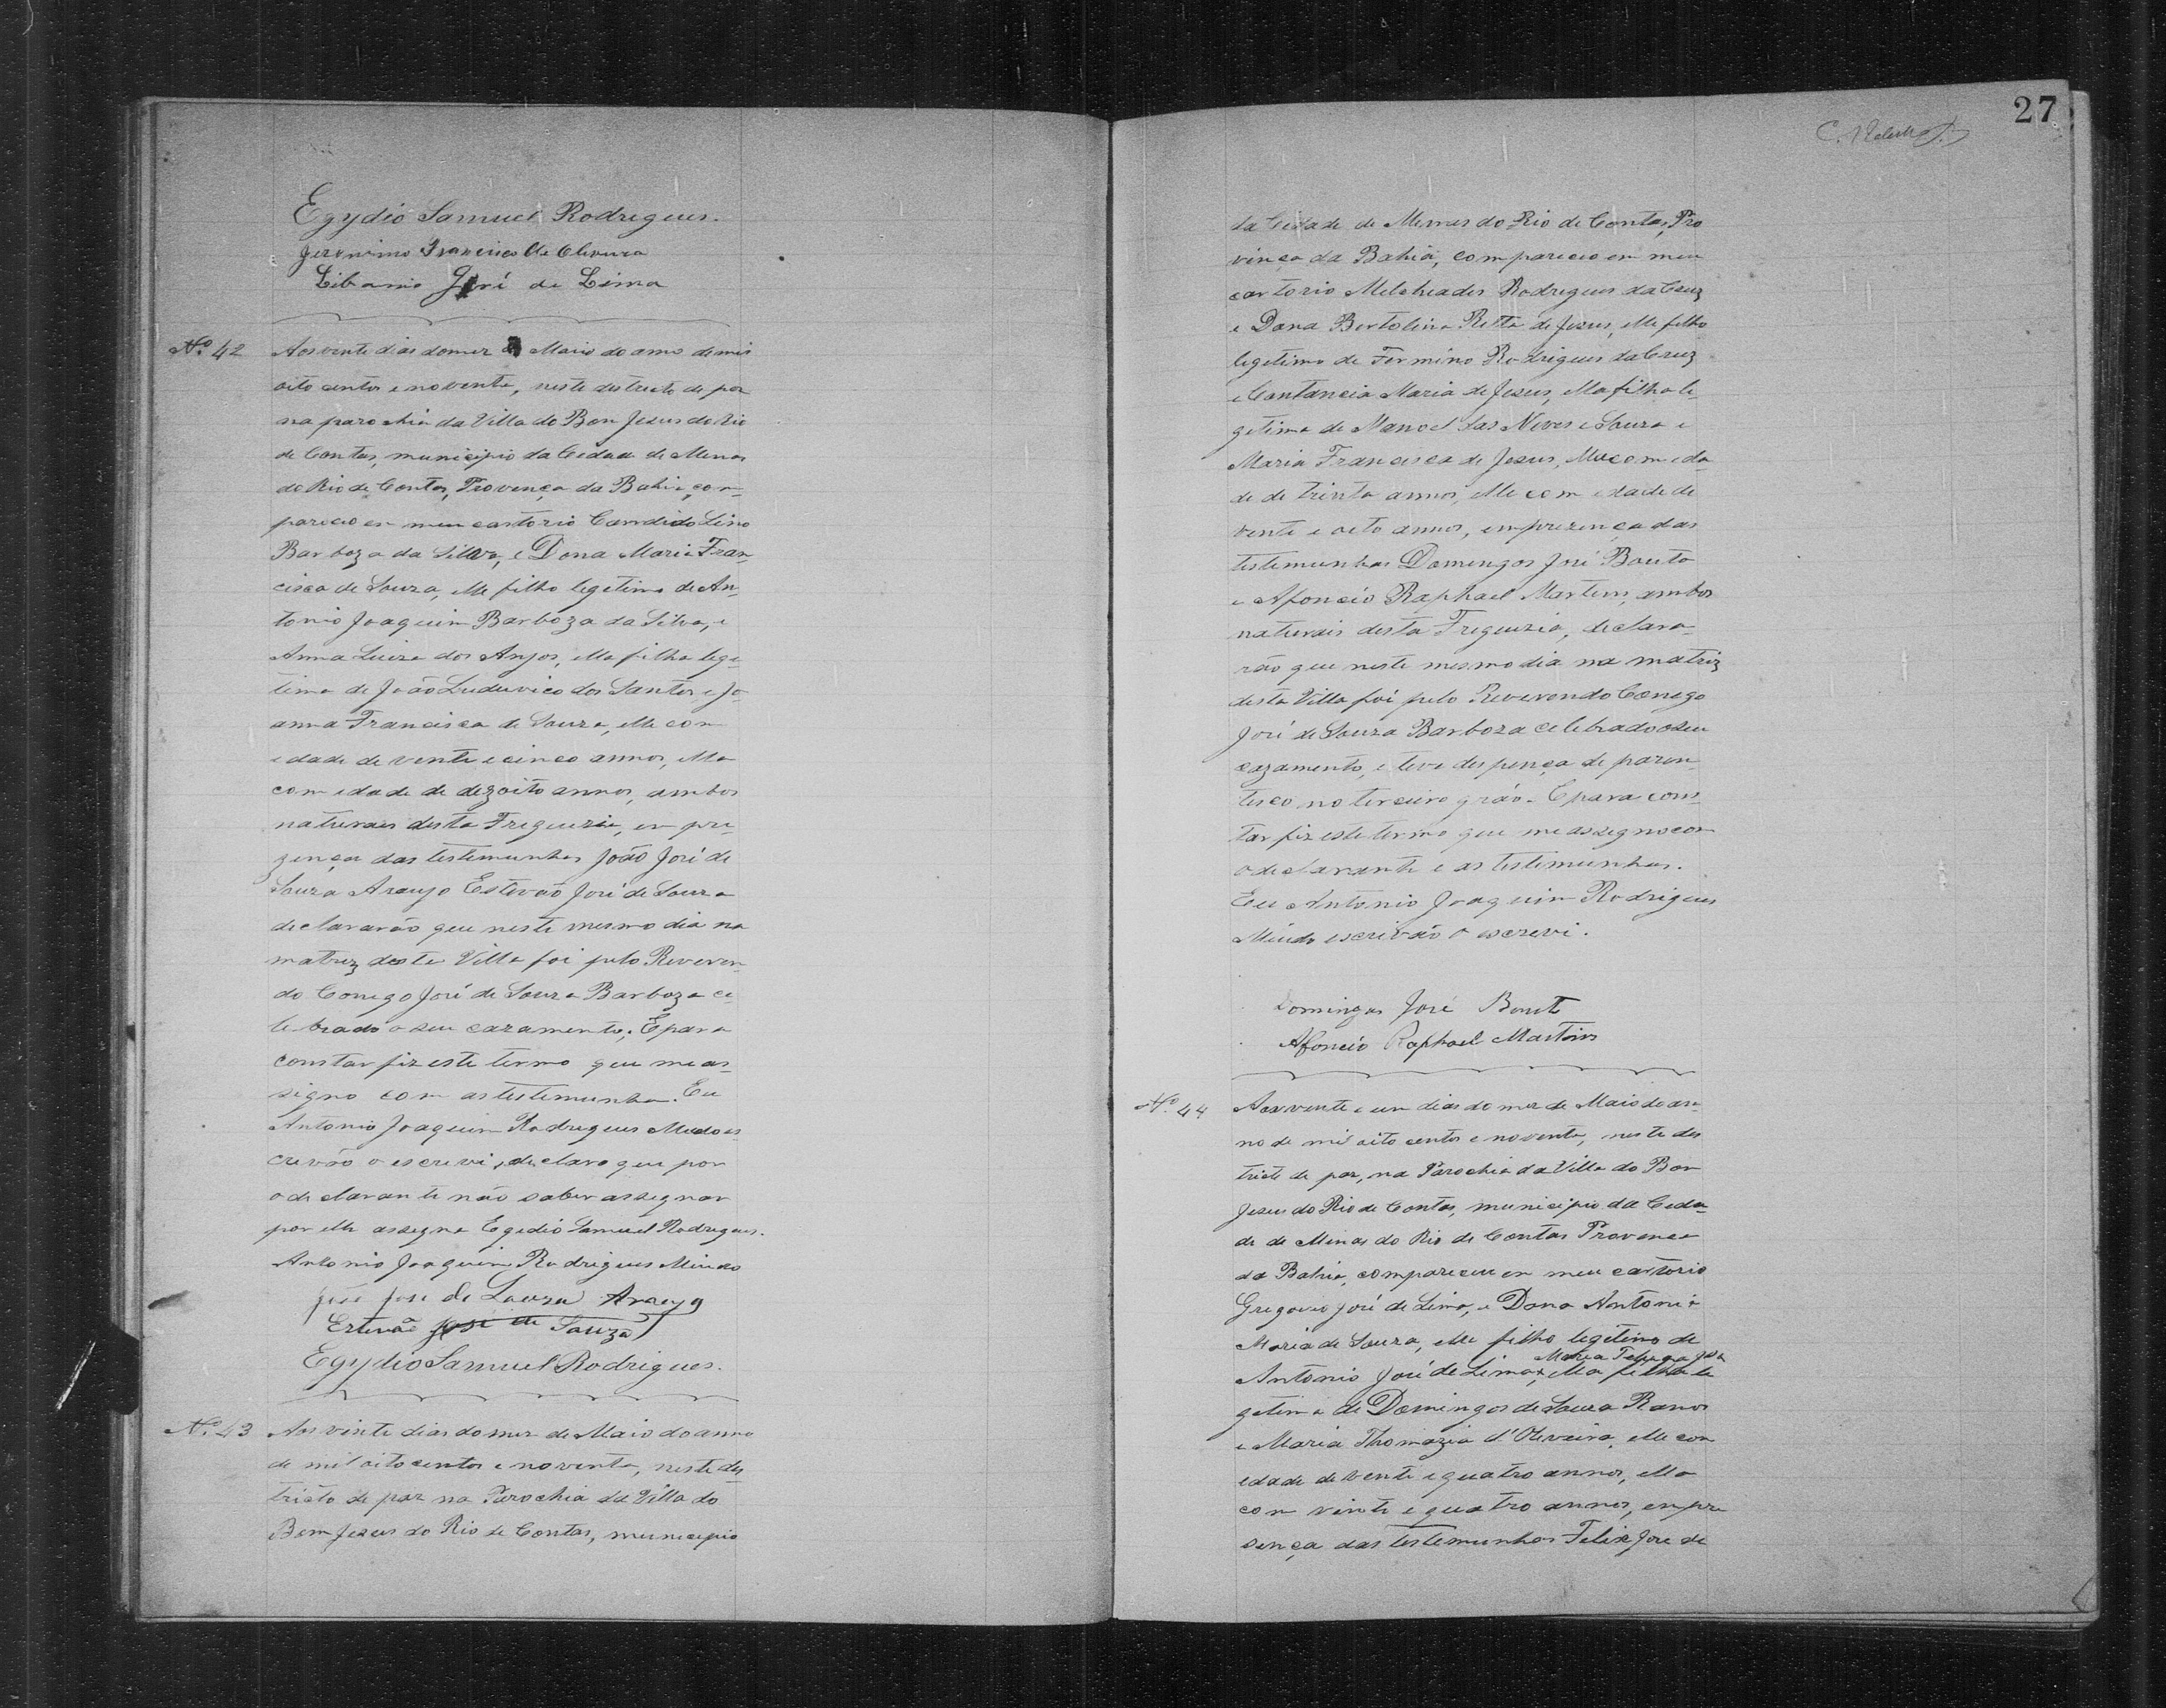 Egydio Samuel Rodrigues.
Jeronimo Francisco de Oliveira
Libanio José de Lima
Nº 42
Aos vente dias do mez de Maio do anno de mil
oito centos e noventa, neste destricto de paz
na parochia da Villa do Bom Jesus do Rio
de Contas, municipio da Cidade de Minas
do Rio de Contas, Provença da Bahia, com-
pareceo em meu cartorio Candido Lino
Barboza da Silva, e Dona Maria Fran-
cisca de Souza, elle filho legetimo de An-
tonio Joaquim Barboza da Silva, e
Anna Luiza dos Anjos, ella filha lege-
tima de João Luduvico dos Santos e Jo-
anna Francisca de Souza, elle com
idade de vente e cinco annos, ella
com idade de dezoito annos, ambos
naturaes desta Freguezia, em pre-
zença das testemunhas João José de
Souza Araujo Estevão José de Souza
declararão que neste mesmo dia na
matriz desta Villa foi pelo Reveren-
do Conego José de Souza Barboza ce-
lebrado o seu cazamento. E para
constar fiz este termo que me as-
signo com as testemunha. Eu
Antonio Joaquim Rodrigues Meudo es-
crevão o escrevi, declaro que por
o declarante não saber assegnar
por elle assegna Egedio Samuel Rodrigues.
Antonio Joaquim Rodrigues Miudo
José de Souza Araujo
Estevão José de Souza
Egydio Samuel Rodrigues.
Nº 43
Aos vinte dias do mez de Maio do anno
de mil oito centos e noventa, neste des
tricto de paz na Parochia da Villa do
Bom Jezus do Rio de Contas, municepio
27
da Cidade de Menas do Rio de Contas, Pro
vinça da Bahia, compareceo em meu
cartorio Melchiades Rodrigues da Cruz
e Dona Bertolina Ritta de Jezus, elle filho
legetimo de Fermino Rodrigues da Cruz
e Constancia Maria de Jezus, ella filha le-
getima de Manoel das Neves e Souza e
Maria Francisca de Jezus, elle com eda-
de de trinta annos, ella com edade de
vente e oito annos, em prezença das
testemunhas Domingos José Bouto
e Afoncio Raphael Martins, ambos
naturais desta Freguezia, declara-
rão que neste mesmo dia na matriz
desta Villa foi pelo Reverendo Conego
José de Souza Barboza celebrado o seu
cazamento, e teve despença de paren-
tesco no terceiro gráo. E para cons-
tar fiz este termo que me assegno com
o declarante e as testemunhas.
Eu Antonio Joaquim Rodrigues
Miudo escrivão o escrevi.
Domingos José Bout
Afoncio Raphael Martins
Nº 44
Aos vente e um dias do mez de Maio do an-
no de mil oito centos e noventa, neste des
tricto de paz, na Parochia da Villa do Bom
Jezus do Rio de Contas, municipio da Ceda-
de de Minas do Rio de Contas Provença
da Bahia, compareceu em meu cartorio
Gregorio José de Lima, e Dona Antonia
Maria de Souza, elle filho legetimo de
Antonio José de Lima, ella filha le
getima de Domingos de Souza Ramos
e Maria Thomazia d'Oliveira, elle com
edade de vente e quatro annos, ella
com vinte e quatro annos, em pre
sença das testemunhas Felix José de